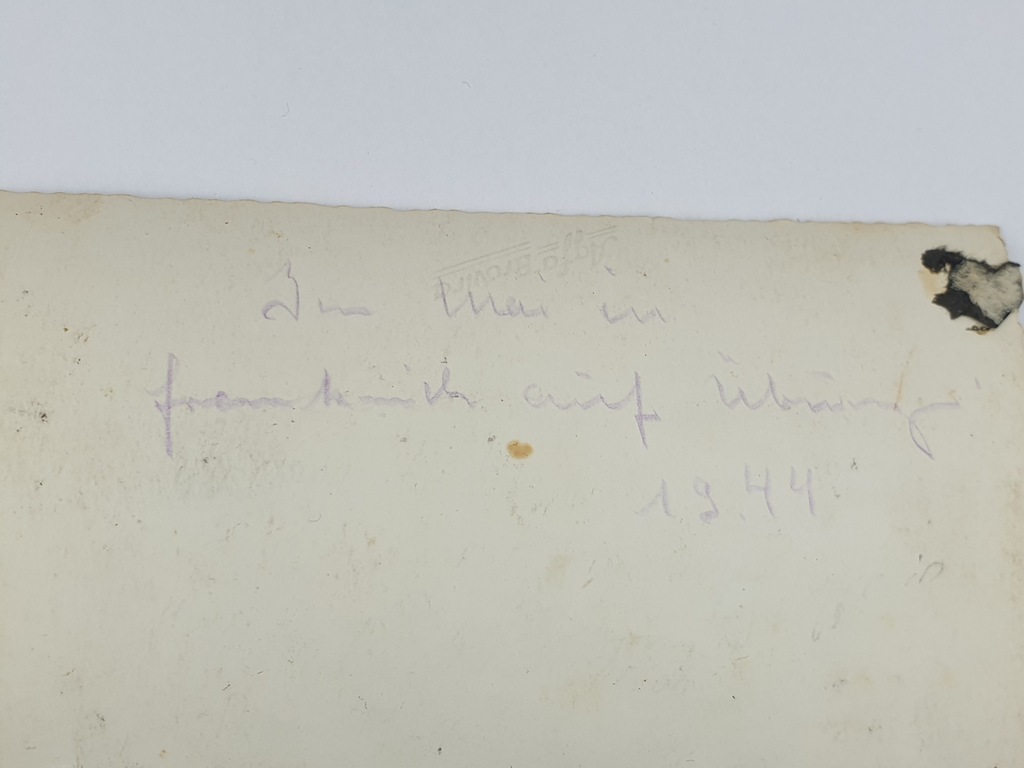 Agfa Brovira
Im Mai in
frankreich auf Übung
19.44